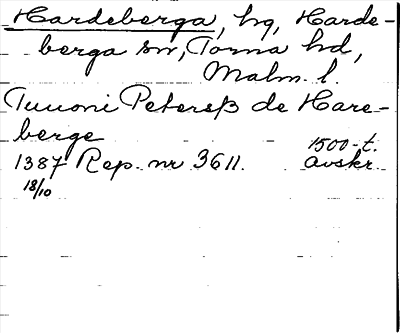 Hardeberga, hg, Harde-
berga sn, Torna hd,
Malm. l.
Tuuoni Petersß de Hare-
berge
1387 Rep. nr 3611. 1500-t. avskr.
18/10